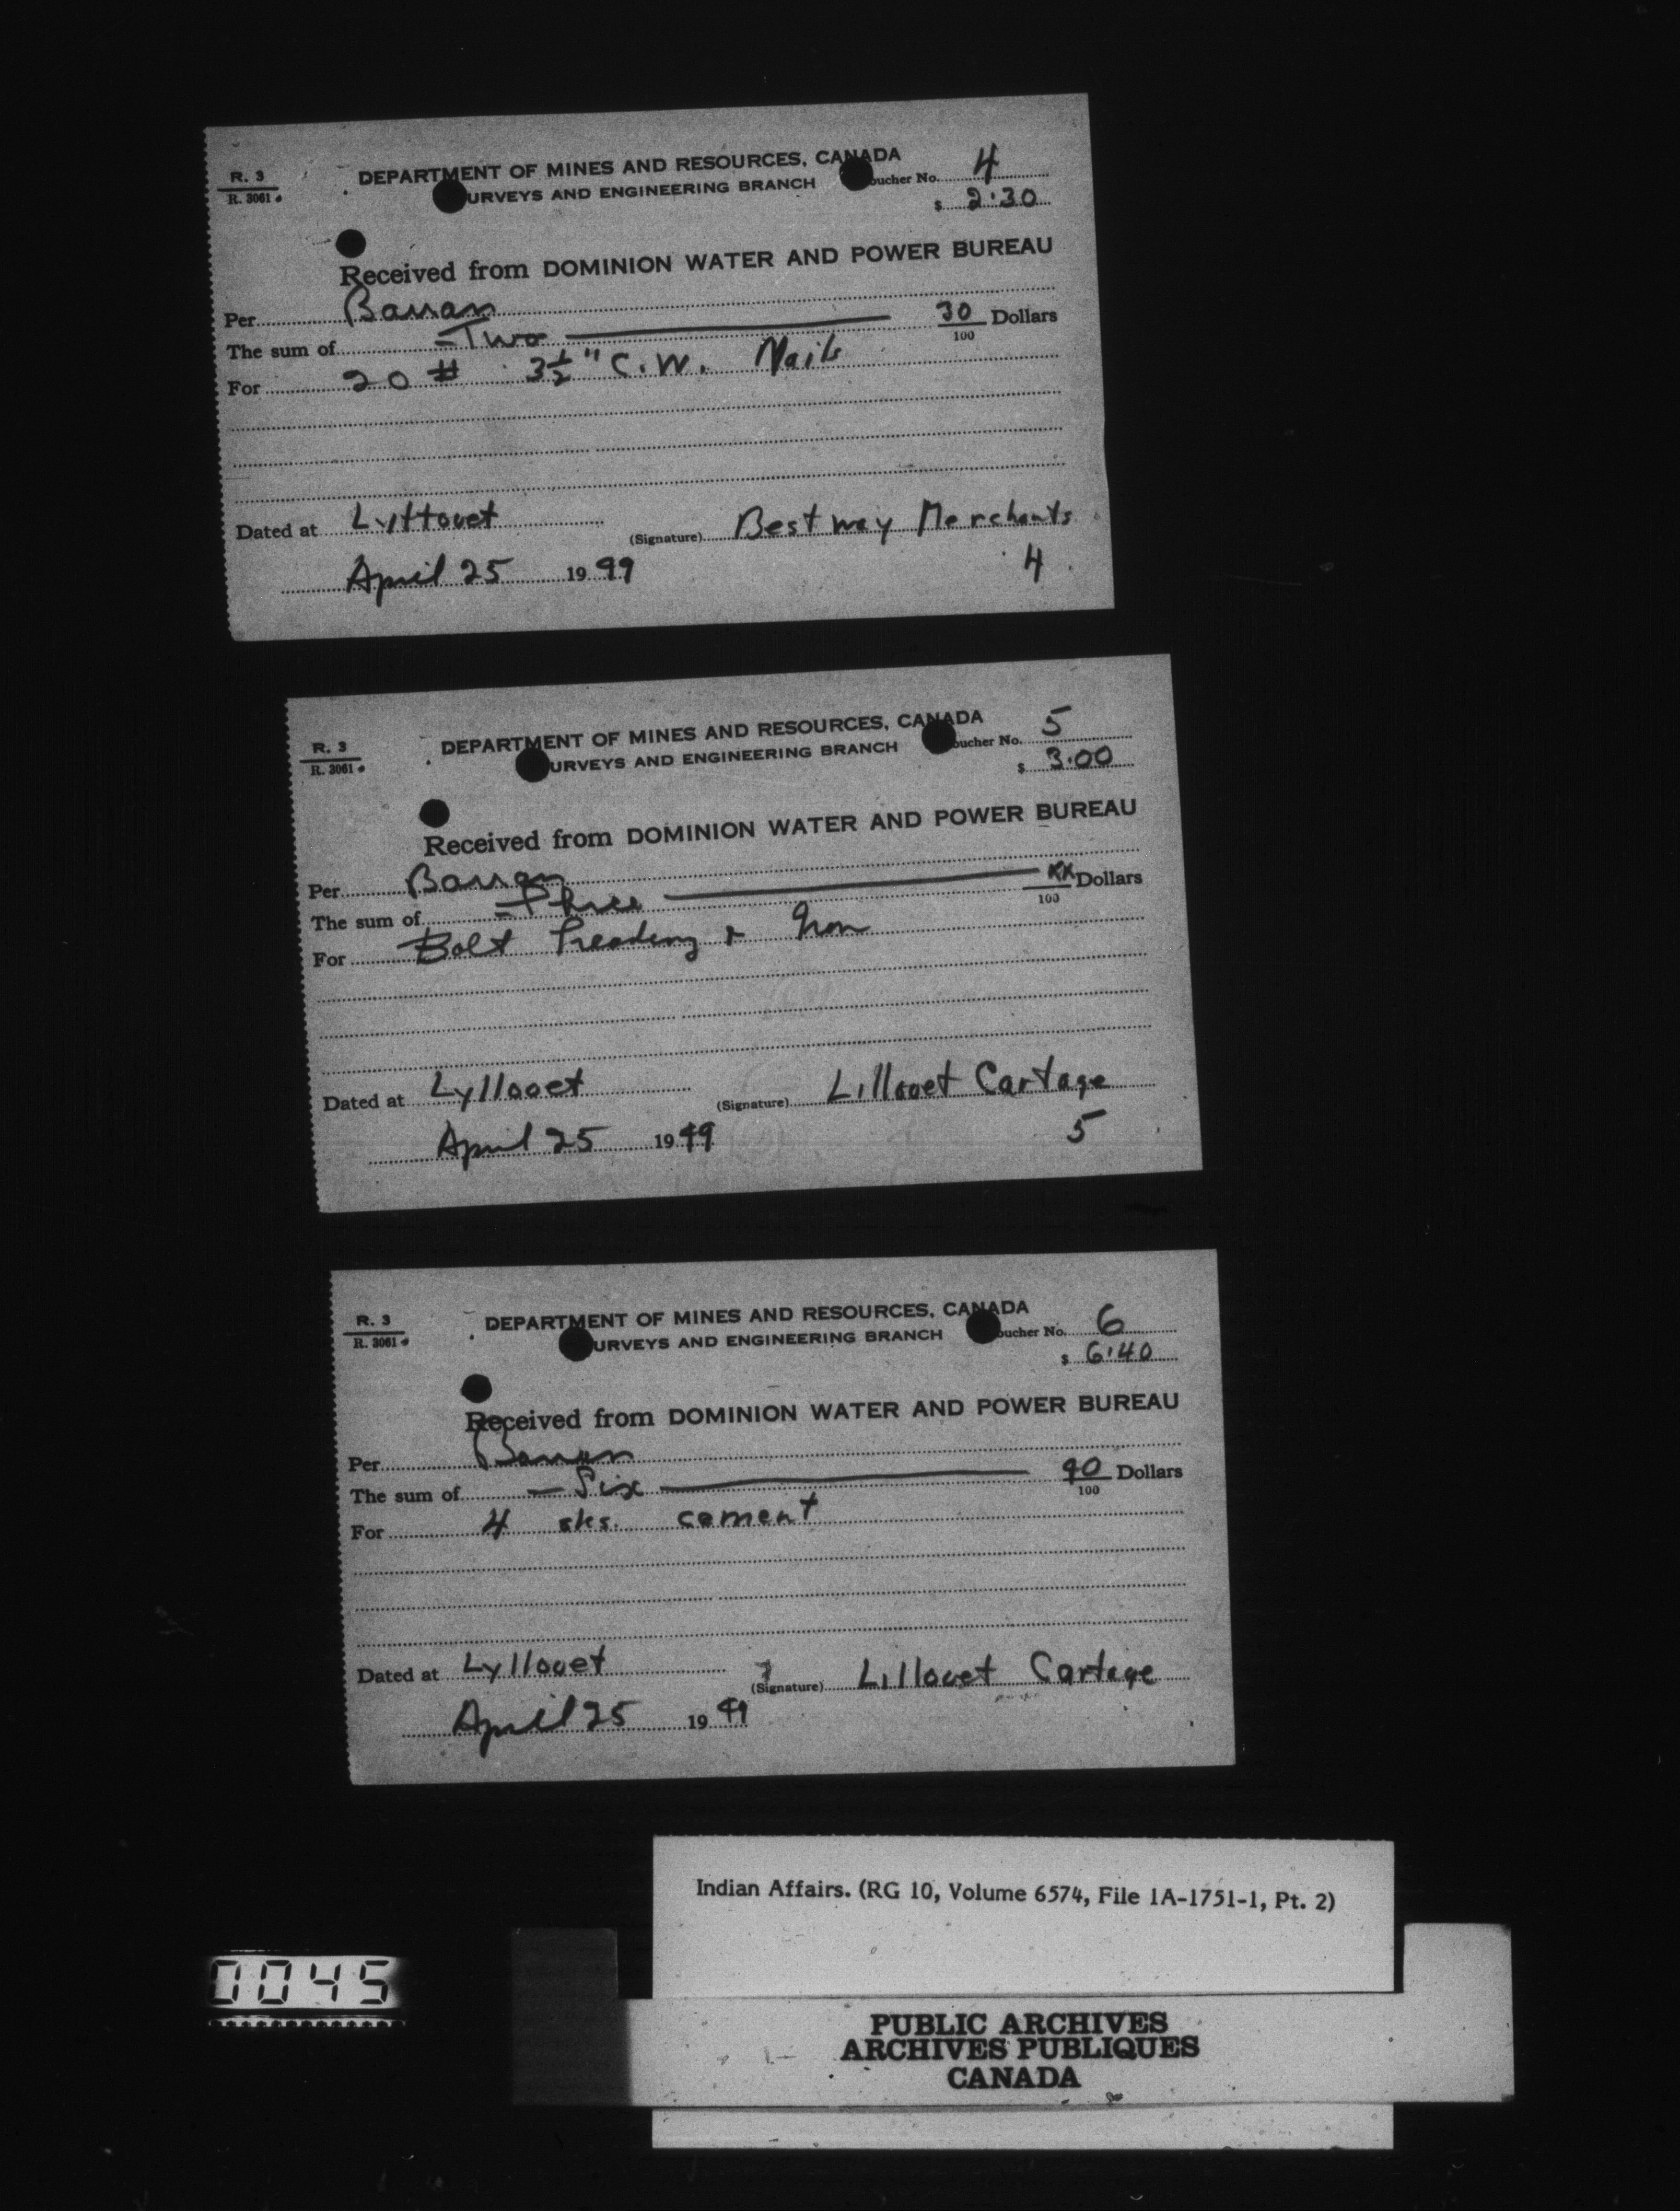 R. 3
R. 3061
DEPARTMENT OF MINES AND RESOURCES, CANADA
URVEYS AND ENGINEERING BRANCH
oucher No. 4
$ 2.30
Received from DOMINION WATER AND POWER BUREAU
Per Barran
The sum of Two 30/100 Dollars
For 20 # 3½" C.W. Nails
Dated at Lyttouet
(Signature) Bestway Merchants
April 25 1949
4
R. 3
R. 3061
DEPARTMENT OF MINES AND RESOURCES, CANADA
URVEYS AND ENGINEERING BRANCH
oucher No. 5
$ 3.00
Received from DOMINION WATER AND POWER BUREAU
Per Barran
The sum of Three xx/100 Dollars
For Bolt Treading & Iron
Dated at Lyllooet
(Signature) Lillooet Cartage
April 25 1949
5
R. 3
R. 3061
DEPARTMENT OF MINES AND RESOURCES, CANADA
URVEYS AND ENGINEERING BRANCH
oucher No. 6
$ 6.40
Received from DOMINION WATER AND POWER BUREAU
Per Barran
The sum of Six 40/100 Dollars
For 4 sks. cement
Dated at Lyllouet
(Signature) Lillouet Cartage
April 25 1949
Indian Affairs. (RG 10, Volume 6574, File 1A-1751-1, Pt. 2)
0045
PUBLIC ARCHIVES
ARCHIVES PUBLIQUES
CANADA